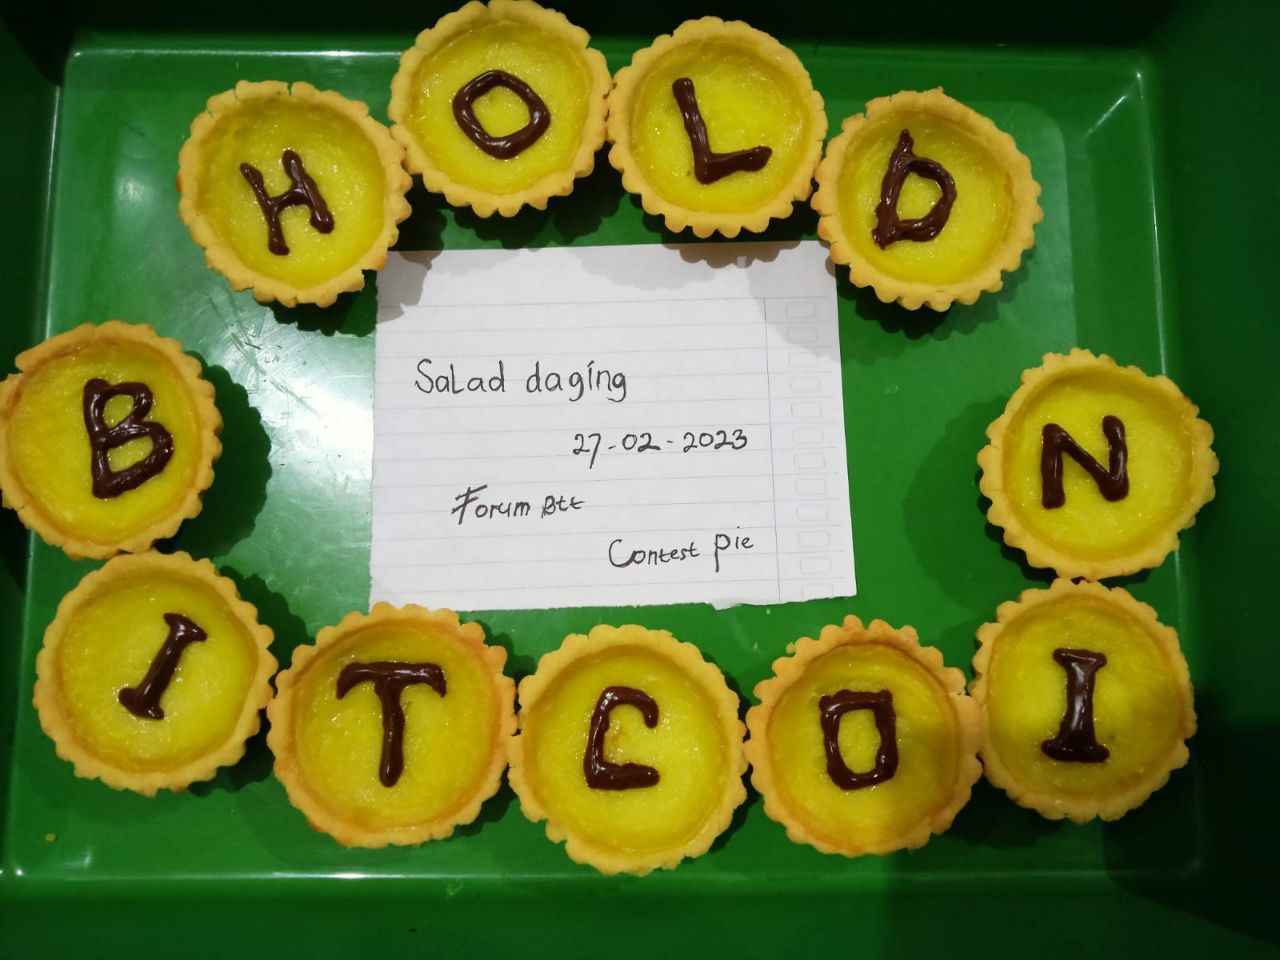 HOLD
Salad daging
27-02-2023
Forum Btt
Contest Pie
BITCOIN